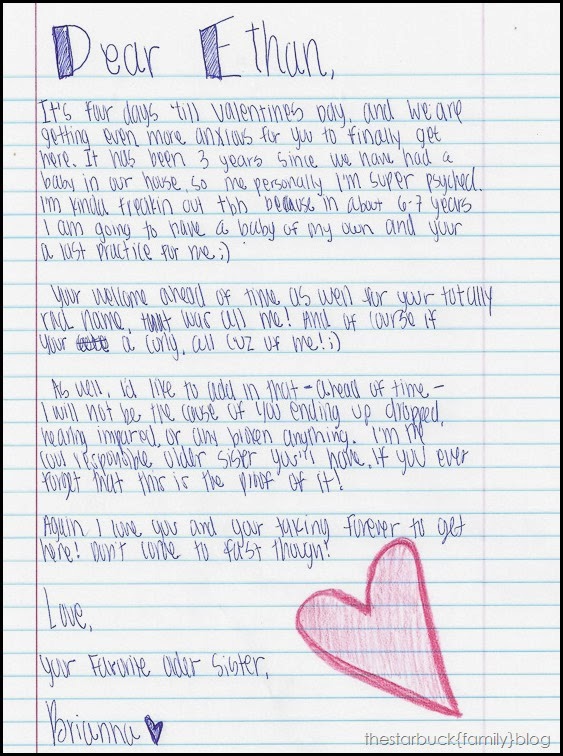 Dear Ethan,
It's four days 'till Valentines Day, and we are
getting even more anxious for you to finally get
here. It has been 3 years since we have had a
baby in our house, so me personally I'm super psyched.
I'm kinda freakin out tbh because in about 6-7 years
I am going to have a baby of my own and your
a last practice for me ;)
Your wellcome ahead of time as well for your totally
rad name, that was all me! And of course if
your a curly, all cuz of me! ;)
As well, I'd like to add in that - ahead of time -
I will not be the cause of you ending up dropped,
hearing impared, or any broken anything. I'm the
cool responsible older sister you'll have. If you ever
forget that this is the proof of it!
Again I love you and your taking forever to get
here! Don't come to fast though!
Love,
your Favorite older Sister,
Brianna
thestarbuck{family}blog